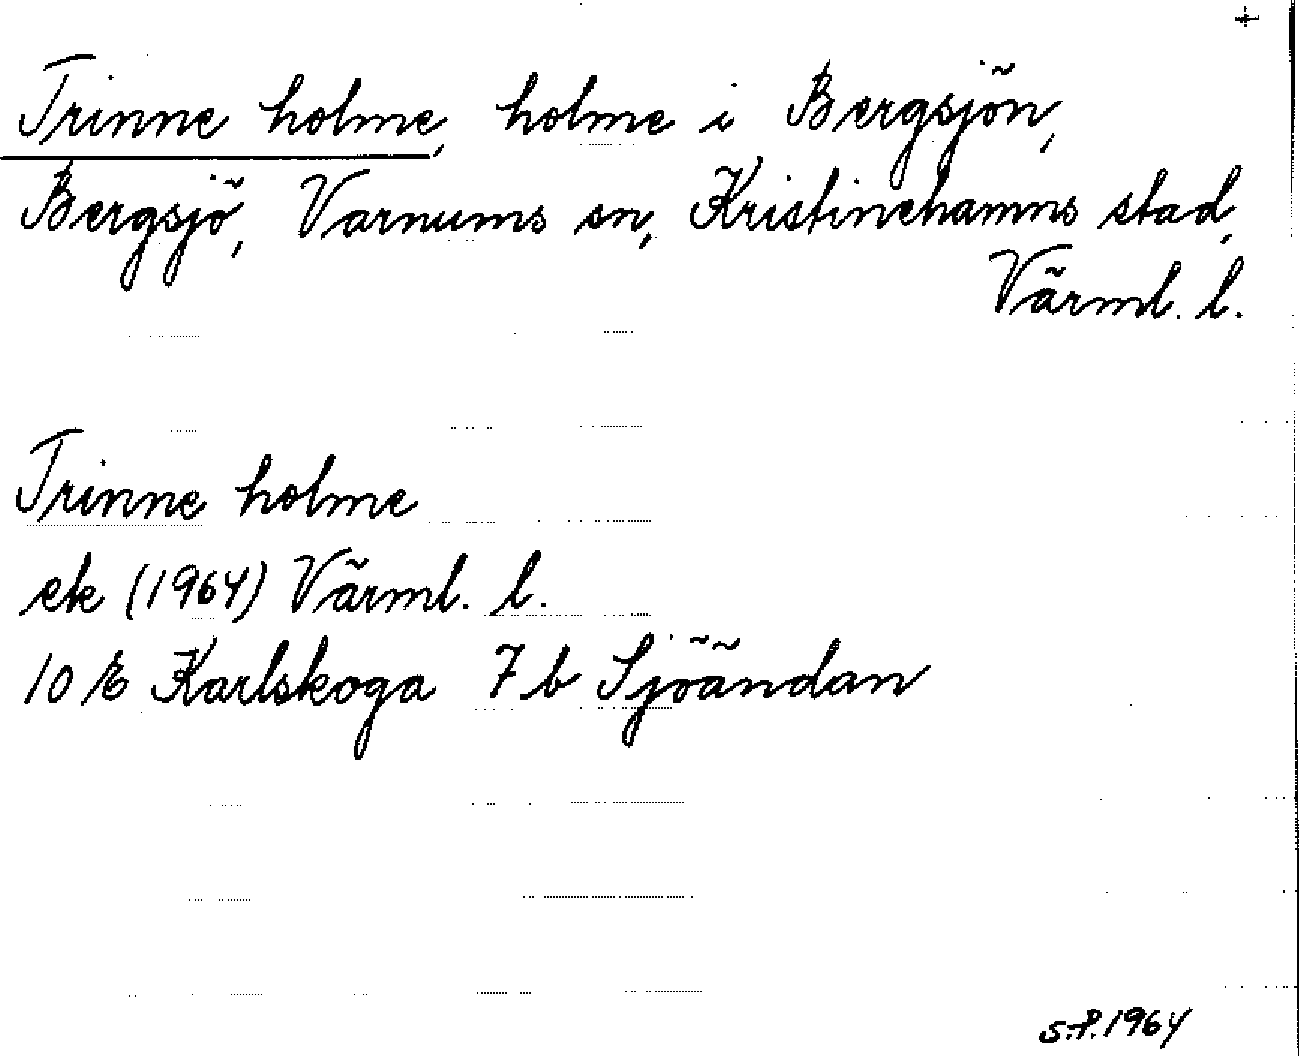 +
Trinne holme, holme i Bergsjön,
Bergsjö, Varnums sn, Kristinehamns stad,
Värml. l.
Trinne holme
ek (1964) Värml. l.
10 E Karlskoga 7b Sjöändan
S.P. 1964